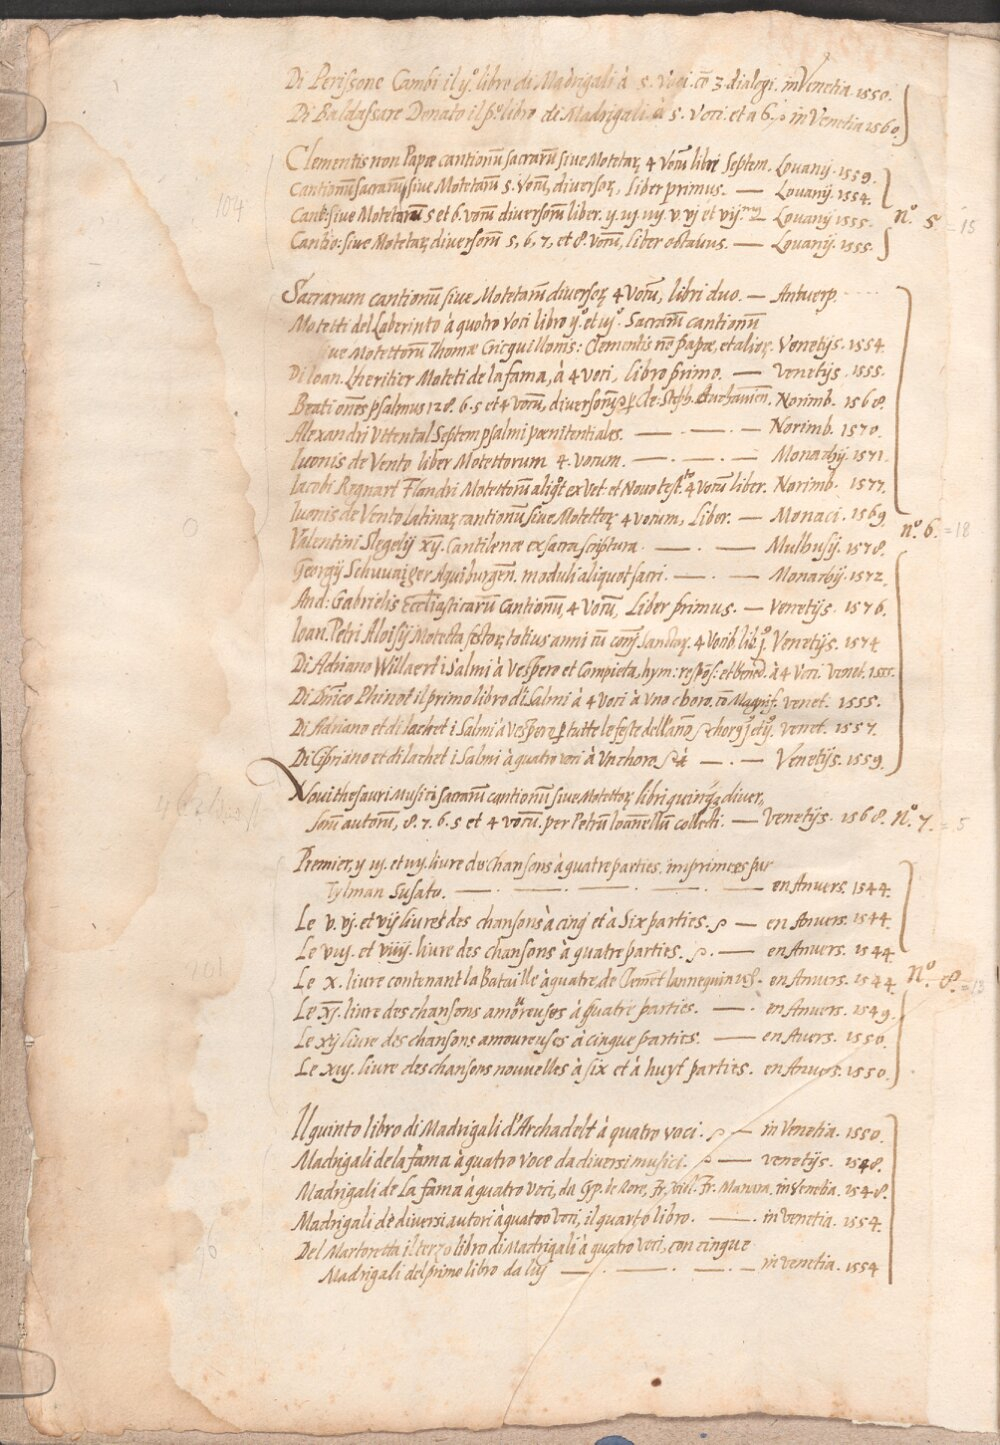 Di Perissone Cambi il ijº. libro di Madrigali à 5. voci. cō 3. dialogi. in Venetia. 1550.
Di Baldassare Donato il pº. libro de Madrigali à 5. voci. et a 6. in Venetia 1560.
Clementis non Papæ cantionū sacrarū sive Motetaꝝ 4 vocū libri Septem. Lovanij. 1559.
Cantionū sacrarū sive Motetarū 5. Vocū, diversoꝝ, liber primus. — Lovanij. 1554.
104
Cant: sive Motetarū 5 et 6. vocū diversorū liber. ij. iij. iiij. v. vj et vij. Lovanij 1555.
nº. 5. = 15
Cantio: sive Motetaꝝ diversorū 5, 6, 7, et 8. Vocū, liber octavus. — Lovanij. 1555.
Sacrarum cantionū sive Motetarū diversoꝝ 4 Vocū, libri duo. — Antverp.
Motetti del Laberinto à quatro Voci libro ijº. et iijº. Sacrarū cantionū
sive Motettorū Thomæ Cricquillonis: Clementis nō papæ, et alioꝝ. Venetijs. 1554.
Di Ioan. Lheritier Moteti de la fama, à 4 voci, libro primo. — Venetijs. 1555.
Beati oēs psalmus 128. 6. 5 et 4 vocū, diversorū, p Cle. Steph. Buchaviēn. Norimb. 1568.
Alexandri Uttental Septem psalmi pœnitentiales. — · — · — Norimb. 1570.
Ivonis de Vento liber Motettorum 4. vocum. — · — · — Monachij. 1571.
Iacobi Regnart Flandri Motettorū aliqͦt ex Vet: et Novo test.to 4 Vocū liber. Norimb. 1577.
Ivonis de Vento latinaꝝ cantionū sive Motettoꝝ 4 vocum, Liber. — Monaci. 1569.
nº. 6. = 18
Valentini Slegelij xij. Cantilenæ ex sacra scriptura. — · — Mulhusij. 1578.
Georgij Schwaiger Aquiburgēn. moduli aliquot sacri. — · — Monachij. 1572.
And: Gabrielis Ecclīasticarū Cantionū, 4 Vocū, Liber primus. — Venetijs. 1576.
Ioan. Petri Aloisij Motetta festoꝝ totius anni cū com̄ Sanctoꝝ. 4 Vocib lib. jº. Venetijs. 1574
Di Adriano Willaert i Salmi à Vespero et Compieta, hym: respōs: et Bened. à 4 Voci. Venet. 1555.
Di Dn̄ico Phinot il primo libro di Salmi à 4 Voci à Uno choro. cō Magnif. Venet. 1555.
Di Adriano et di Iachet i Salmi à Vespere p tutte le feste dell'anō, choro j et ij. Venet. 1557.
Di Cipriano et di Iachet i Salmi à quatro voci à Un choro — · — Venetijs. 1559.
Novi thesauri Musici Sacrarū cantionū sive Motettoꝝ libri quinqꝫ diver,
sorū autorū, 8. 7. 6. 5 et 4 vocū. per Petrū Ioannellū collecti. — Venetijs. 1568. Nº. 7. = 5
Premier, ij iij. et iiij. livre des chansons à quatre parties, imprimees par
Tylman Susato. — · — · — · — · — en Anvers. 1544.
Le v. vj. et vij livres des chansons à cinq et à Six parties. — en Anvers. 1544.
Le viij. et viiij. livre des chansons à quatre parties. — en Anvers. 1544.
101
Le x. livre contenant la Bataille à quatre, de Clemēt Iannequin. en Anvers. 1544.
Nº. 8. = 13
Le xj. livre des chansons amoureuses à quatre parties. — · en Anvers. 1549.
Le xij livre des chansons amoureuses à cinque parties. — en Avers. 1550.
Le xiij. livre des chansons nouvelles à six et à huyt parties. en Anvers. 1550.
Il quinto libro di Madrigali d'Archadelt à quatro voci. — in Venetia. 1550.
Madrigali de la fama à quatro voce da diversi musici. — Venetijs. 1548.
Madrigali de La fama à quatro Voci, da Cip. de Rore, Fr. Viol. Fr. Manara. in Venetia. 1548.
Madrigali de diversi autori à quatro voci, il quarto libro. — · in Venetia. 1554.
Del Martoretta il terzo libro di Madrigali à quatro Voci, con cinque
Madrigali del primo libro da lui — · — · — · — in Venetia. 1554